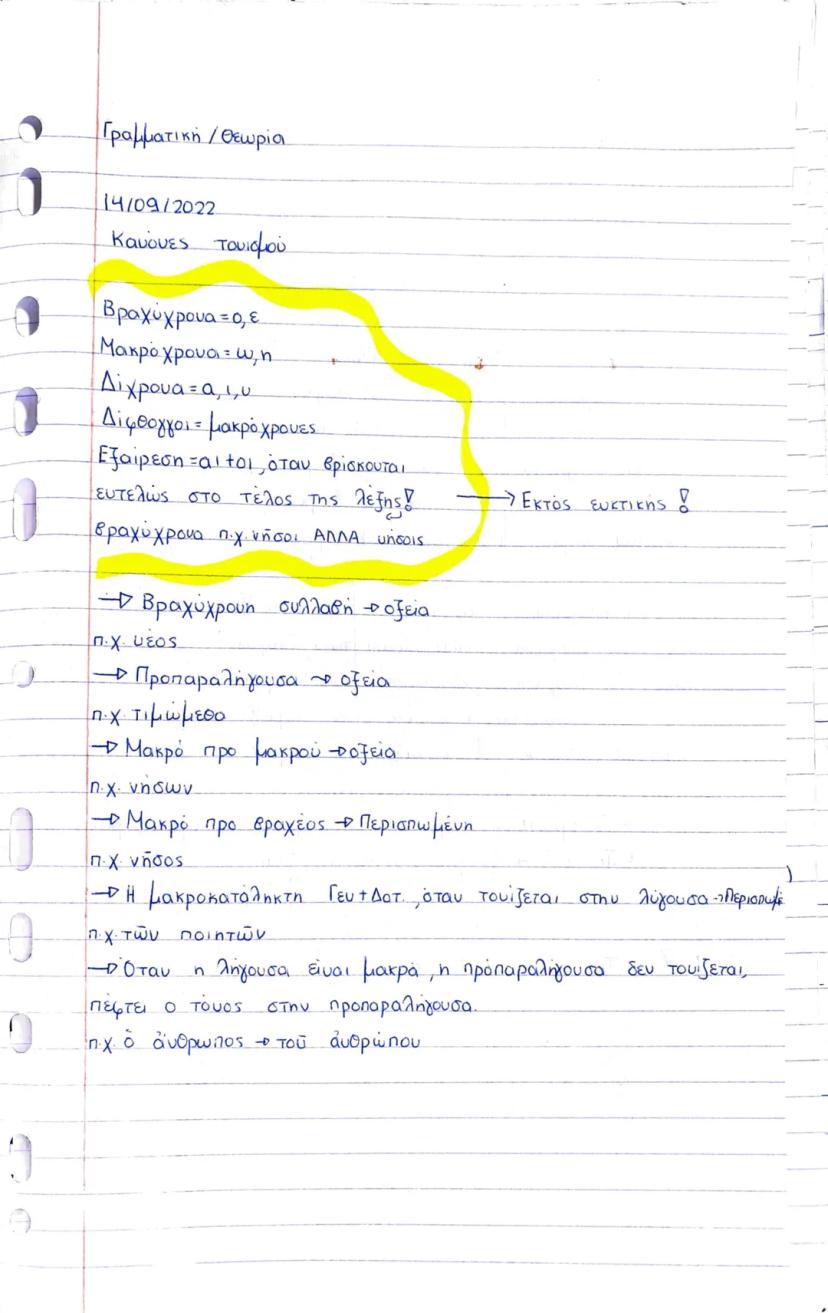 Γραμματική / Θεωρία
14/09/2022
Κανόνες τονισμού
Βραχύχρονα = ο, ε
Μακρόχρονα = ω, η
Δίχρονα = α, ι, υ
Δίφθογγοι = μακρόχρονες
Εξαίρεση = αι + οι, όταν βρίσκονται
εντελώς στο τέλος της λέξης! → Εκτός ευκτικής !
βραχύχρονα π.χ. νῆσοι ΑΛΛΑ νήσοις
→ Βραχύχρονη συλλαβή → οξεία
π.χ. νέος
→ Προπαραλήγουσα → οξεία
π.χ. τιμώμεθα
→ Μακρό προ μακρού → οξεία
π.χ. νήσων
→ Μακρό προ βραχέος → Περισπωμένη
π.χ. νῆσος
→ Η μακροκατάληκτη Γεν + Δοτ., όταν τονίζεται στην λύγουσα → Περισπωμέ
π.χ. τῶν ποιητῶν
→ Όταν η λήγουσα είναι μακρά, η προπαραλήγουσα δεν τονίζεται,
πέφτει ο τόνος στην προπαραλήγουσα.
π.χ. ὁ ἄνθρωπος → τοῦ ἀνθρώπου